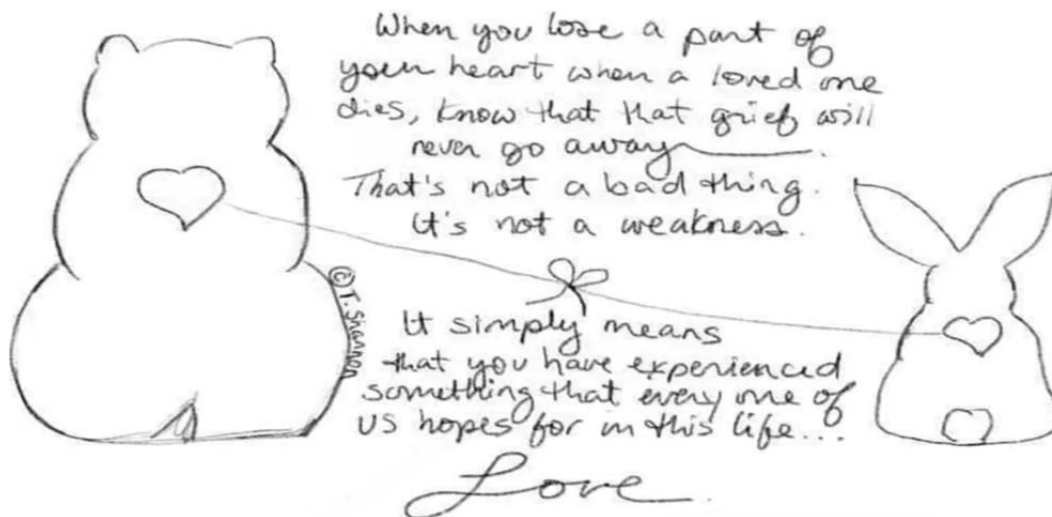 When you lose a part of
your heart when a loved one
dies, know that that grief will
never go away.
That's not a bad thing.
It's not a weakness.
©T. Shannon
It simply means
that you have experienced
something that every one of
us hopes for in this life...
Love